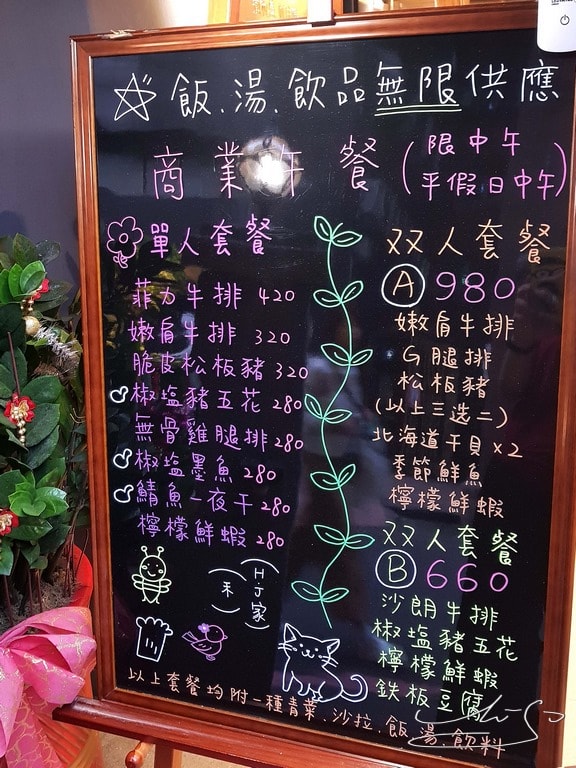 飯、湯、飲品無限供應
商業午餐(限中午
平假日中午)
單人套餐
菲力牛排 420
嫩肩牛排 320
脆皮松板豬 320
椒塩豬五花 280
無骨雞腿排 280
椒塩墨魚 280
鯖魚一夜干 280
檸檬鮮蝦 280
双人套餐
A 980
嫩肩牛排
G腿排
松板豬
(以上三选二)
北海道干貝x2
季節鮮魚
檸檬鮮蝦
双人套餐
B 660
沙朗牛排
椒塩豬五花
檸檬鮮蝦
鉄板豆腐
H.J家
以上套餐均附一種青菜、沙拉、飯、湯、飲料